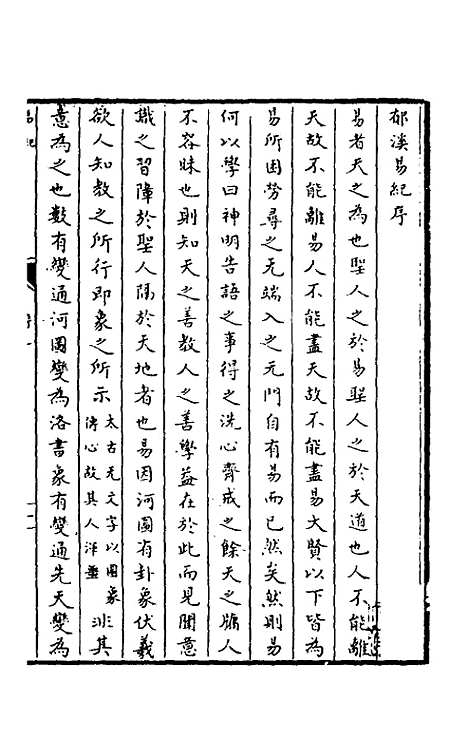 郁溪易紀序
易者天之為也聖人之於易聖人之於天道也人不能離
天故不能離易人不能盡天故不能盡易大賢以下皆為
易所困勞尋之无端入之无門自有易而已然矣然則易
何以學曰神明告語之事得之洗心齋戒之餘天之牖人
不容昧也則知天之善教人之善學益在於此而見聞意
識之習障於聖人隔於天地者也易因河圖有卦象伏羲
欲人知教之所行即象之所示太古无文字以圖象傳心故其人渾噩非其
意為之也數有變通河圖變為洛書象有變通先天變為
易紀
序
一